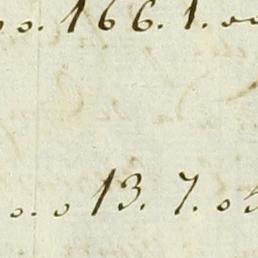 o. 166. 1. oo
o. o 13. 7. o